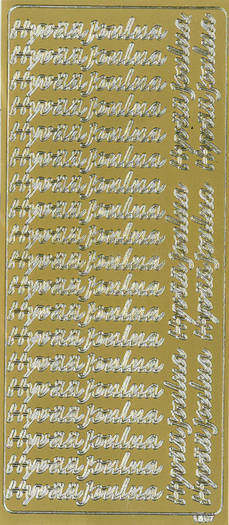 Hyvää Joulua
Hyvää Joulua
Hyvää Joulua
Hyvää Joulua
Hyvää Joulua
Hyvää Joulua
Hyvää Joulua
Hyvää Joulua
Hyvää Joulua
Hyvää Joulua
Hyvää Joulua
Hyvää Joulua
Hyvää Joulua
Hyvää Joulua
Hyvää Joulua
Hyvää Joulua
Hyvää Joulua
Hyvää Joulua
Hyvää Joulua
Hyvää Joulua
Hyvää Joulua
Hyvää Joulua
Hyvää Joulua
Hyvää Joulua
Hyvää Joulua